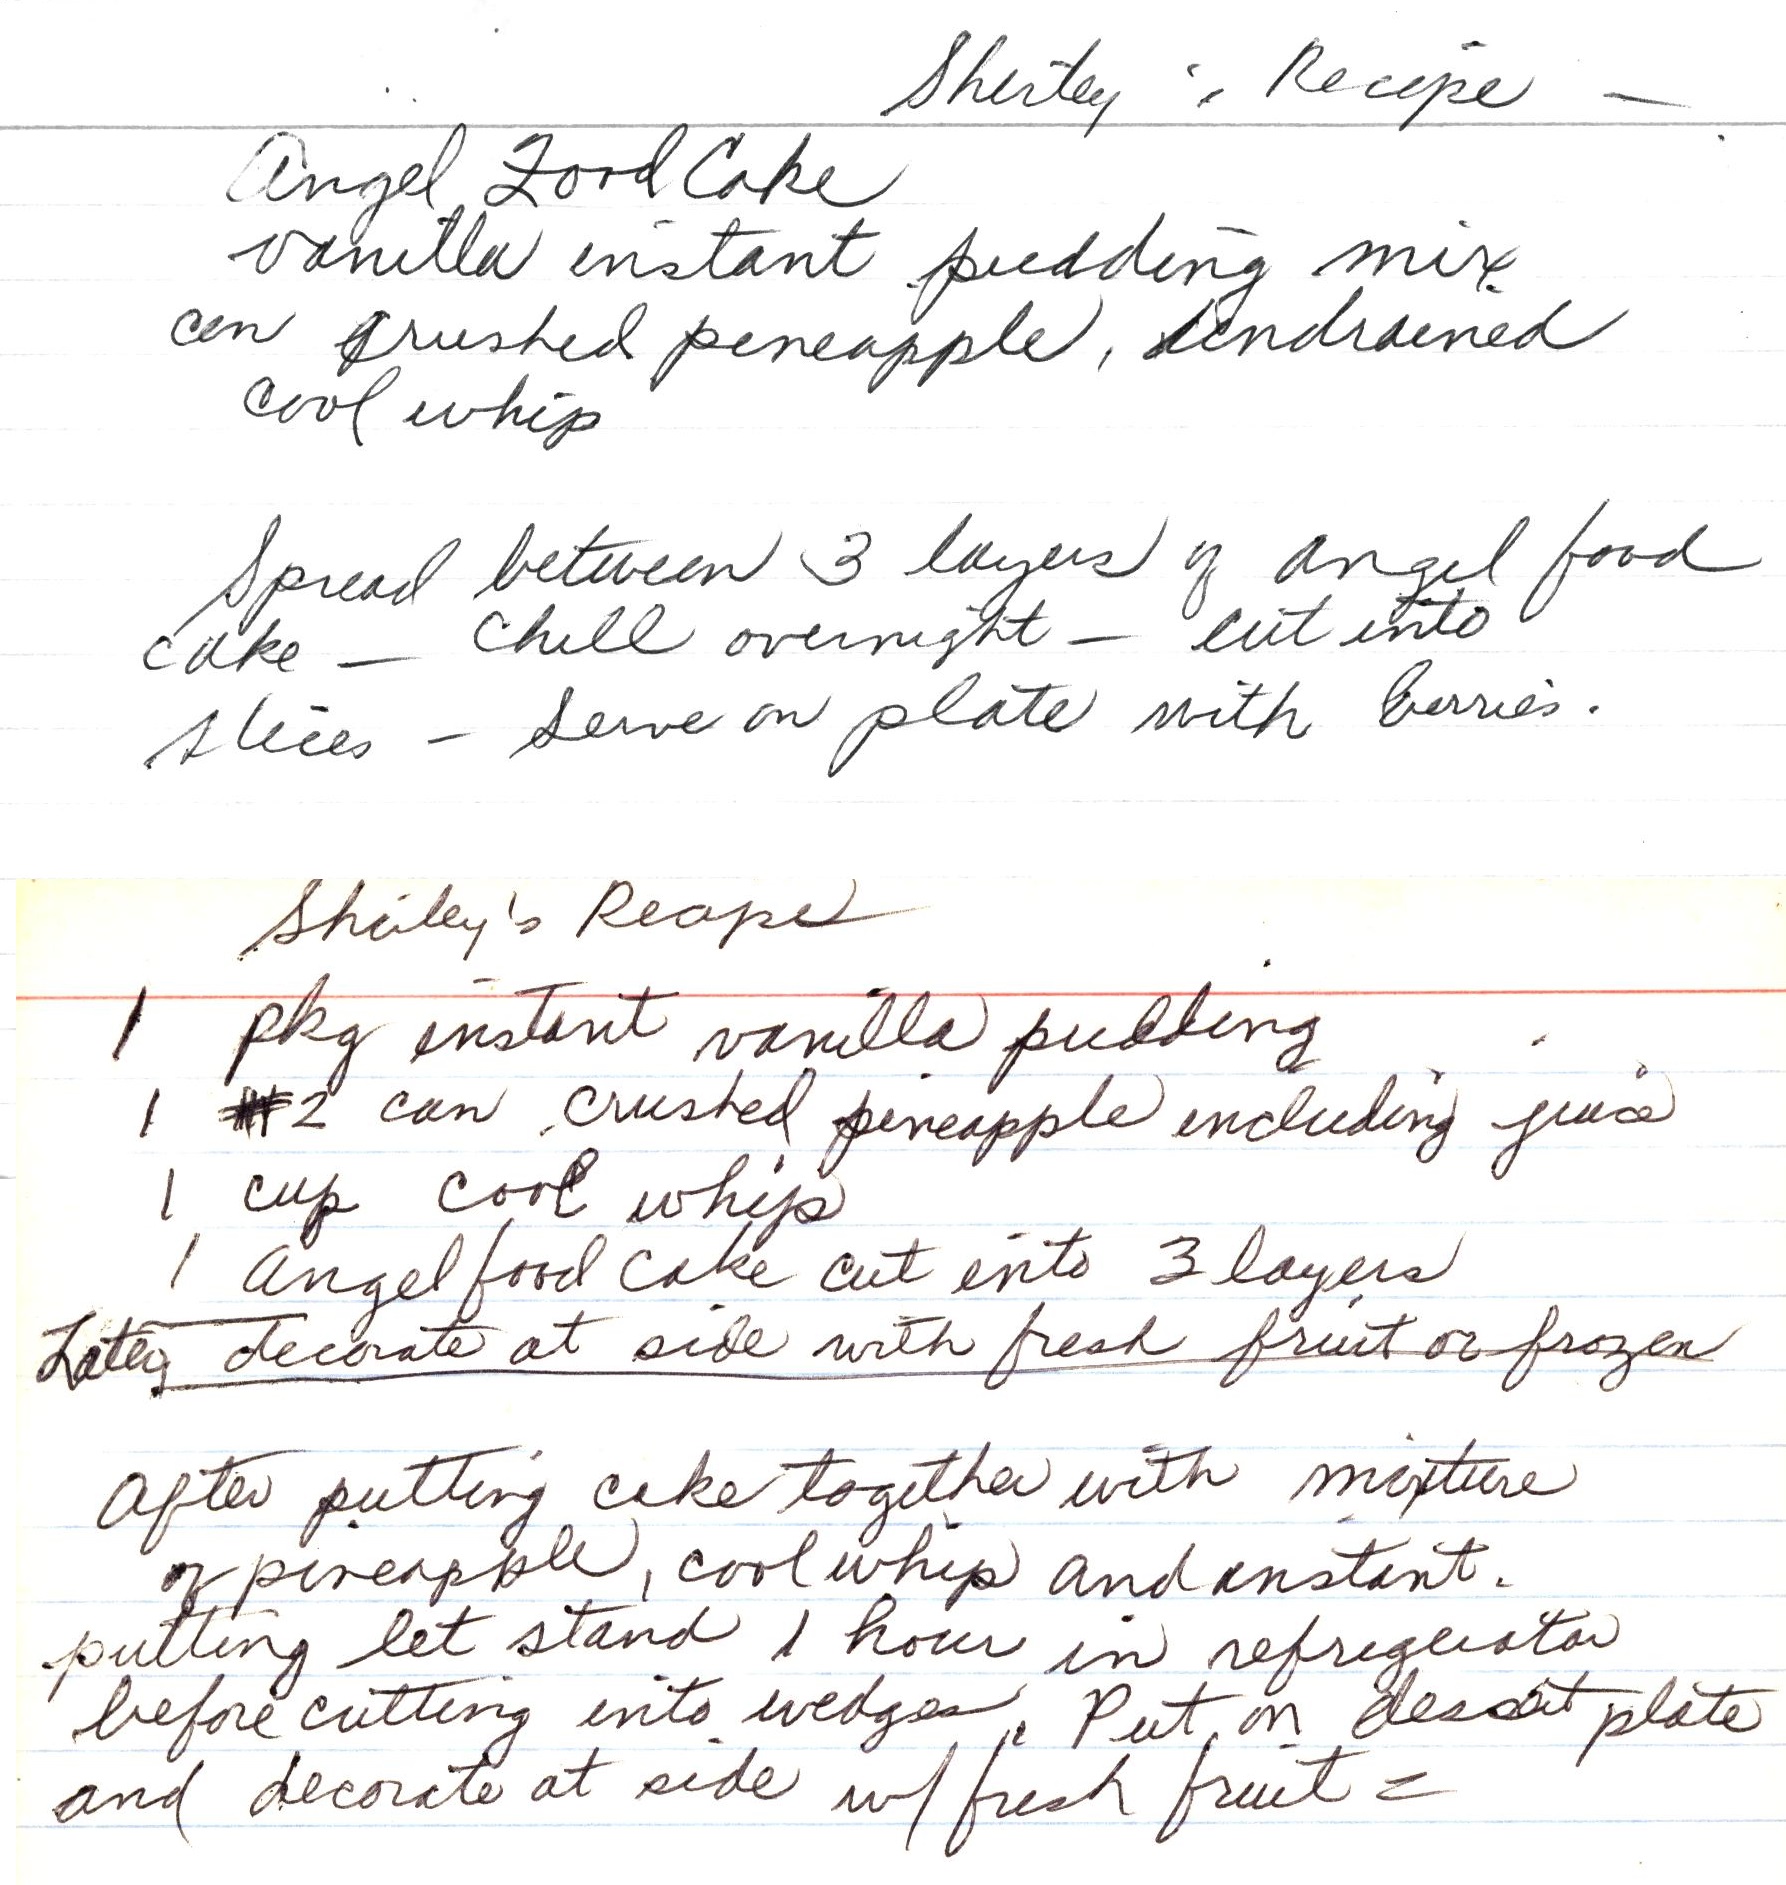 Shirley's Recipe —
Angel Food Cake
vanilla instant pudding mix
can crushed pineapple, undrained
cool whip
Spread between 3 layers of angel food
cake — Chill overnight — cut into
slices — Serve on plate with berries.
Shirley's Recipe
1 pkg instant vanilla pudding
1 #2 can crushed pineapple including juice
1 cup cool whip
1 Angel food cake cut into 3 layers
Later decorate at side with fresh fruit or frozen
After putting cake together with mixture
of pineapple, cool whip and instant.
putting let stand 1 hour in refrigerator
before cutting into wedges. Put on dessert plate
and decorate at side w/ fresh fruit =